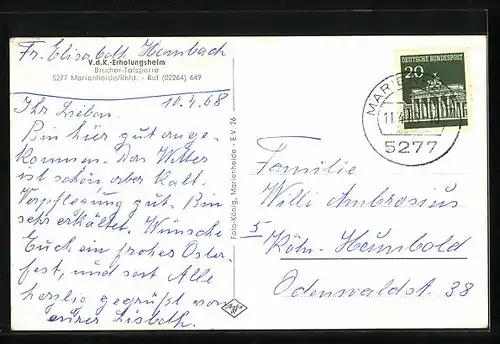 Fr. Elisabeth Hembach
V.d.K.-Erholungsheim
Brucher-Talsperre
5277 Marienheide/Rhld. - Ruf (02264) 649
10.4.68
Ihr Lieben.
Bin hier gut ange-
kommen. Das Wetter
ist schön aber kalt.
Verpflegung gut. Bin
sehr erkältet. Wünsche
Euch ein frohes Oster-
fest, und seit Alle
herzlic gegrüßt von
eurer Lisbeth.
Foto-König, Marienheide - E.V. 26
DEUTSCHE BUNDESPOST
20
MARIE
11.4
5277
Familie
Willi Ambrosius
5 Köln-Heumbold
Odenwaldst. 38